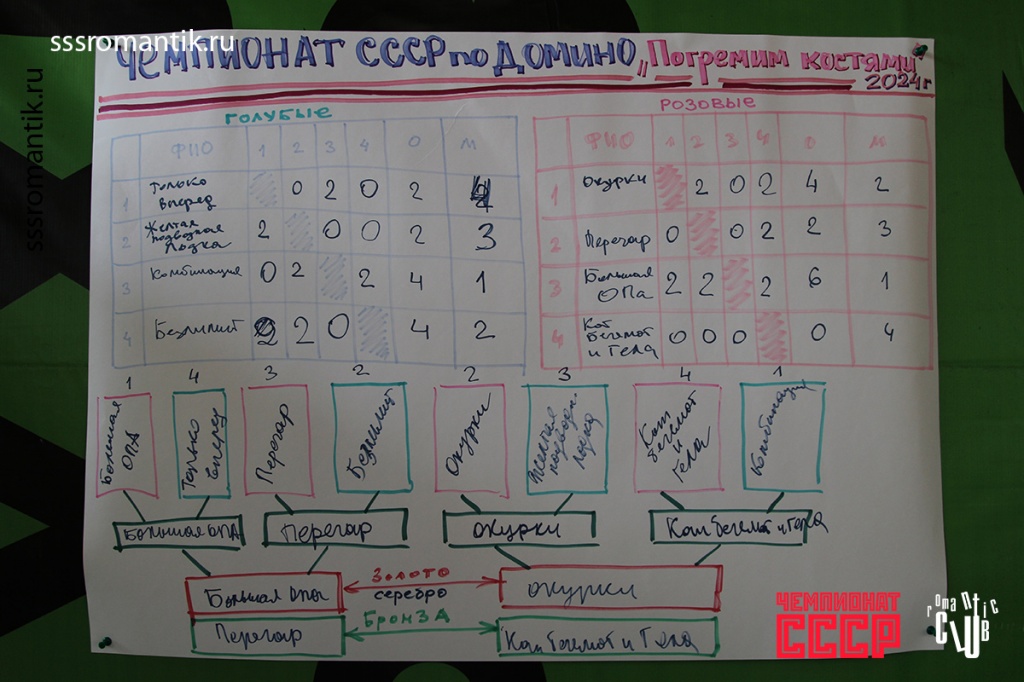 sssromantik.ru
sssromantik.ru
ЧЕМПИОНАТ СССР по ДОМИНО „Погремим костями"
2024г
ГОЛУБЫЕ
ФИО 1 2 3 4 О М
1 Только вперед 0 2 0 2 4
2 Желтая подводная лодка 2 0 0 2 3
3 Комбинация 0 2 2 4 1
4 Безлимит 2 2 0 4 2
РОЗОВЫЕ
ФИО 1 2 3 4 О М
1 Окурки 2 0 2 4 2
2 Перегар 0 0 2 2 3
3 Большая ОПа 2 2 2 6 1
4 Кот бегемот и Гела 0 0 0 0 4
1 4 3 2 2 3 4 1
Большая ОПА
Только вперед
Перегар
Безлимит
Окурки
Желтая подводн лодка
Кот бегемот и Гела
Комбинация
Большая ОПА
Перегар
Окурки
Кот Бегемот и Гела
Большая Опа
Золото
серебро
Окурки
Перегар
БРОНЗА
Кот Бегемот и Гела
ЧЕМПИОНАТ
СССР
romantic
CLUB